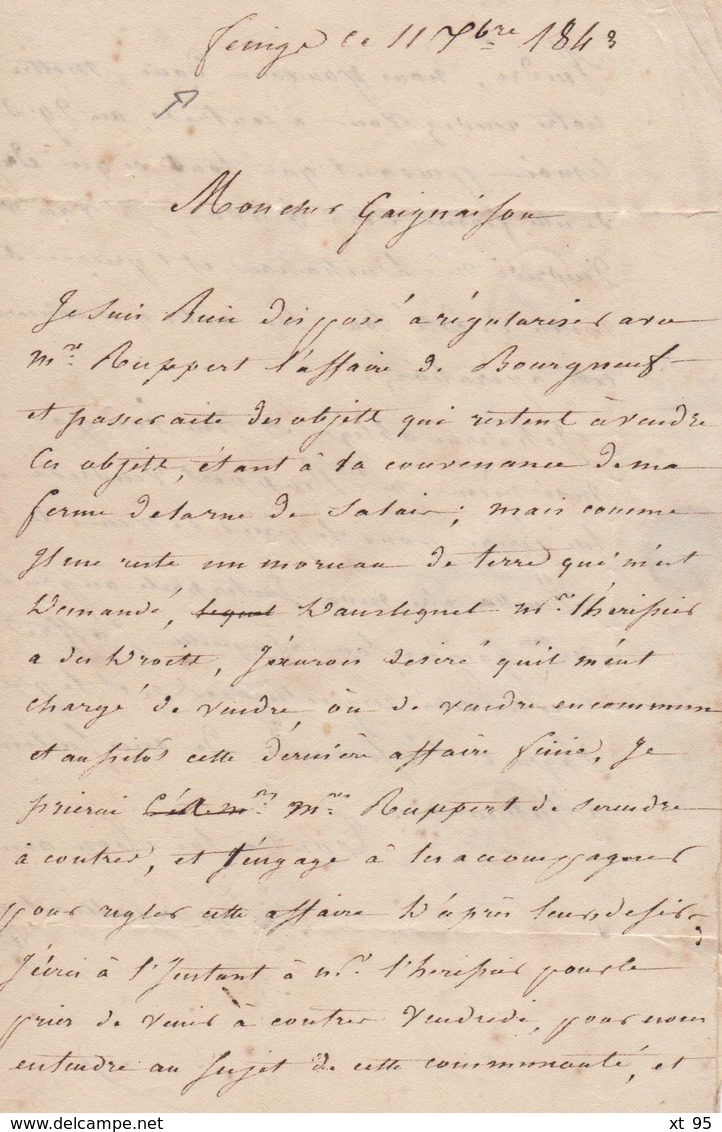 ce 11 7bre 1843
Mon cher Gaignaison
Je suis Bien disposé a régulariser avec
mrs Ruppert l'affaire de Bourgneuf
et passer acte des objets qui restent à vendre
Ces objets, étant à la convenance de ma
ferme de larne de Salair; mais comme
Il me reste un morceau de terre qui m'est
Demandé, lequel Dans lequel mr. l'hérissier
a des Droits, J'aurois desiré qu'il m'eut
chargé de vendre, où de vendre en commun
et aussitot cette dernière affaire finie, Je
prierai mrs Ruppert de se rendre
à contres, et J'engage à les accompagner
pour regler cette affaire D'après leurs desirs
J'écris à l'Instant à mr. l'herissier pour le
prier de venir à contres Vendredi, pour nous
entendre au Sujet de cette communauté, et
xt 95